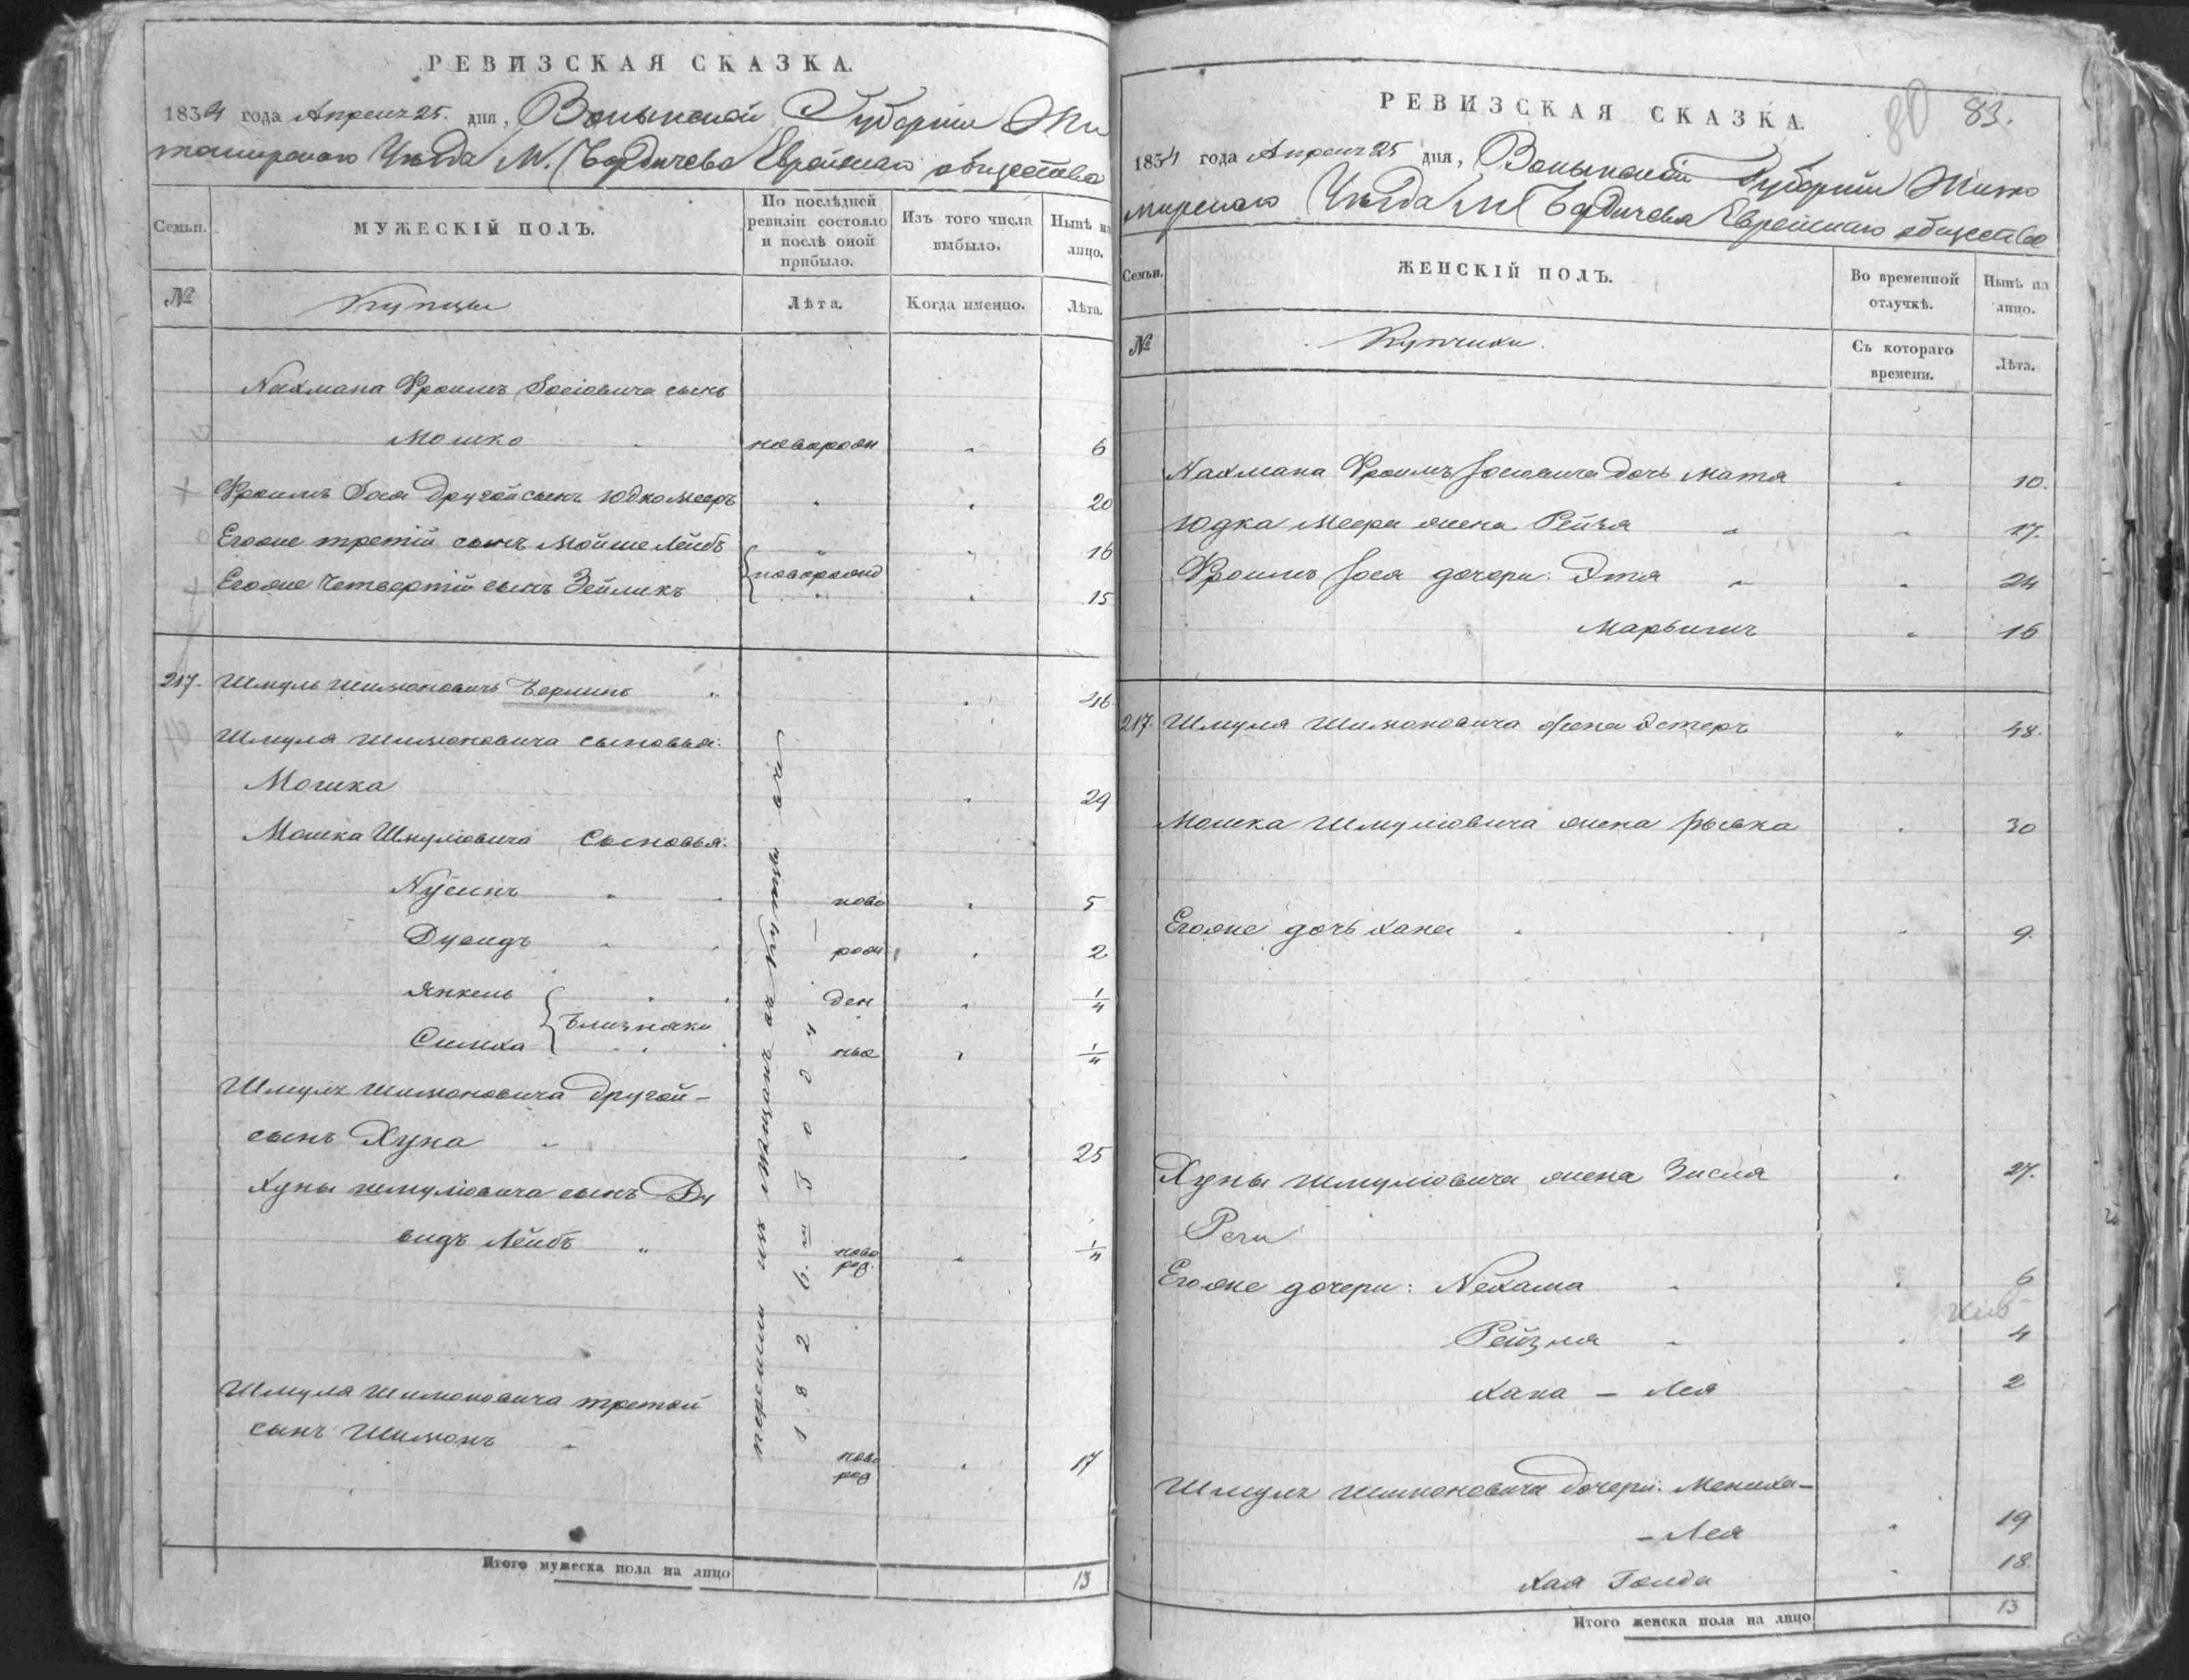 РЕВИЗСКАЯ СКАЗКА.
1834 года Апреля 25. дня, Волынской Губернии Жи
томирскаго Уѣзда М. Бердичева Еврейскаго общества
Семьи.
МУЖЕСКІЙ ПОЛЪ.
По послѣдней
ревизіи состояло
и послѣ оной
прибыло.
Изъ того числа
выбыло.
Нынѣ на
лицо.
№
Купцы
Лѣта.
Когда именно.
Лѣта.
Нахмана Фроимъ Іосіовича сынъ
Мошко новорожд 6
Фроимъ Іося другой сынъ Юдко Мееръ 20
Егоже третій сынъ Мойше Лейбъ 16
новорожд
Егоже четвертій сынъ Зейликъ 15
217. Шмуль Шимоновичъ Берлинъ 46
Шмуля Шимоновича сыновья:
Мошка 29
Мошка Шмуліовича Сыновья:
Нусинъ ново 5
Дувидъ рож 2
Янкель ден 1/4
Близняки
Симха ные 1/4
Шмуля Шимоновича другой –
сынъ Хуна 25
Хуны Шмуліовича сынъ Ду
видъ Лейбъ ново 1/4
род.
Шмуля Шимоновича третій
сынъ Шимонъ ново 17
род
перешли изъ мѣщанъ въ купцы
1826.го года
Итого мужеска пола на лицо 13
80 83.
РЕВИЗСКАЯ СКАЗКА.
1834 года Апреля 25 дня, Волынской Губерніи Жито
мирскаго Уѣзда М Бердичева Еврейскаго общества
Семьи.
ЖЕНСКІЙ ПОЛЪ.
Во временной
отлучкѣ.
Нынѣ на
лицо.
№
Купчихи.
Съ котораго
времени.
Лѣта.
Нахмана Фроимъ Іосіовича дочь Матя 10.
Юдка Меера жена Рейзя 17.
Фроимъ Іося дочери: Этя 24
Марьимъ 16
217. Шмуля Шимоновича жена Эстеръ 48.
Мошка Шмуліовича жена Рывка 30
Егоже дочь Хана 9.
Хуны Шмуліовича жена Зисля 27.
Егоже дочери: Нехама 6
Рейзля 4
Хана – Лея 2
Шмуля Шимоновича дочери: Мениха –
– Лея 19
Хая Голда 18
Итого женска пола на лицо 13